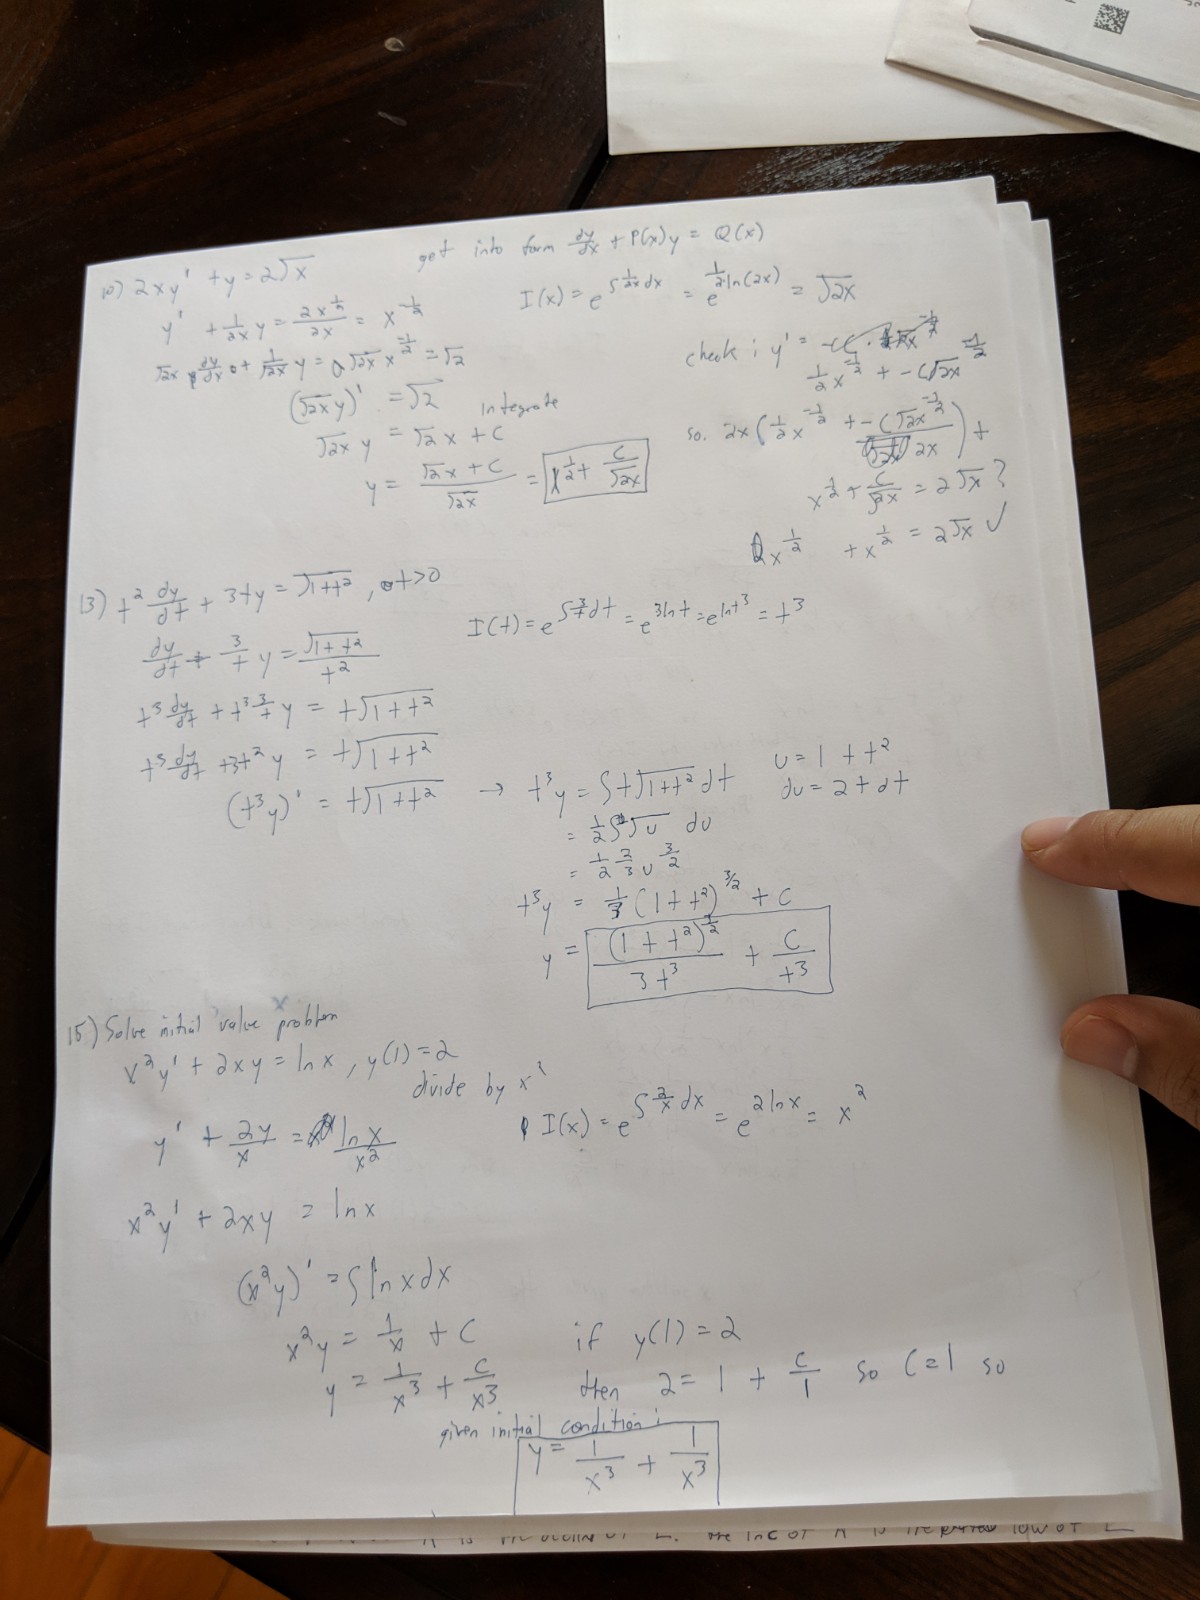 10) 2xy' + y = 2√x
get into form dy/dx + P(x)y = Q(x)
y' + 1/2x y = 2x^½/2x = x^-½
I(x) = e^∫1/2x dx = e^½ln(2x) = √2x
√2x dy/dx + 1/√2x y = √2x x^-½ = √2
(√2x y)' = √2
integrate
√2x y = √2 x + C
y = √2 x + C/√2x = x^½ + C/√2x
check: y' =
½x^-½ + -C√2x^-½
so. 2x(½x^-½ + -C√2x^-½/2x) +
x^½ + C/√2x = 2√x?
x^½ + x^½ = 2√x ✓
13) t² dy/dt + 3ty = √1+t², t>0
dy/dt + 3/t y = √1+t²/t²
I(t) = e^∫3/t dt = e^3lnt = e^lnt³ = t³
t³ dy/dt + t³ 3/t y = t√1+t²
t³ dy/dt + 3t² y = t√1+t²
(t³y)' = t√1+t²
→ t³y = ∫t√1+t² dt
u = 1 + t²
du = 2t dt
= ½∫√u du
= ½ ⅔ u^3/2
t³y = ⅓(1+t²)^3/2 + C
y = (1+t²)^3/2/3t³ + C/t³
15) Solve initial value problem
x²y' + 2xy = lnx, y(1) = 2
divide by x²
y' + 2y/x = lnx/x²
I(x) = e^∫2/x dx = e^2lnx = x²
x²y' + 2xy = lnx
(x²y)' = ∫lnxdx
x²y = 1/x + C
y = 1/x³ + C/x³
if y(1) = 2
then 2 = 1 + C/1 so C=1 so
given initial condition:
y = 1/x³ + 1/x³